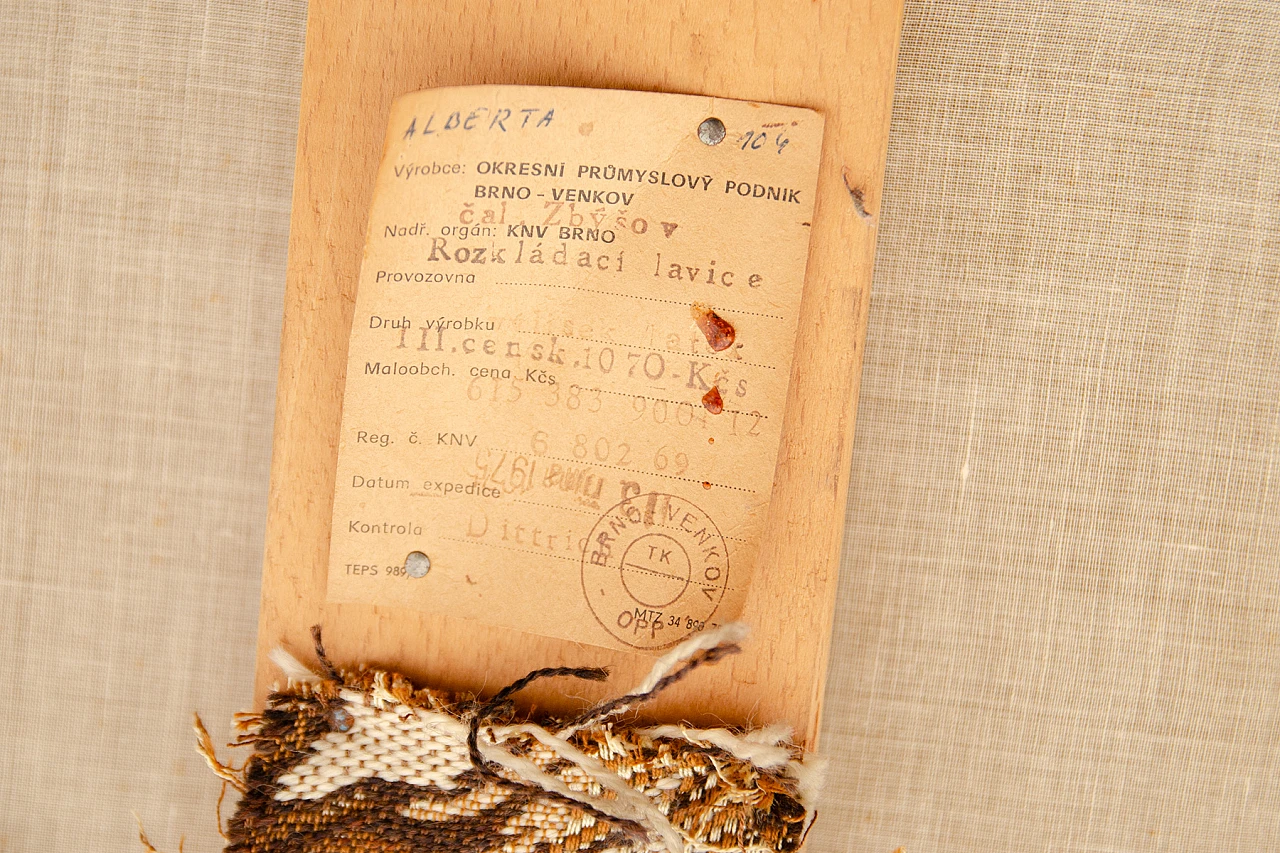 ALBERTA 104
Výrobce: OKRESNÍ PRŮMYSLOVÝ PODNIK
BRNO - VENKOV
čal. Zbýšov
Nadř. orgán: KNV BRNO
Rozkládací lavice
Provozovna
Druh výrobku
III.censk.1070-Kčs
Maloobch. cena Kčs
615 383 9004 12
Reg. č. KNV 6 802 69
1975
Datum expedice
Kontrola
TEPS 989
BRNO VENKOV
TK
OPP
MTZ 34